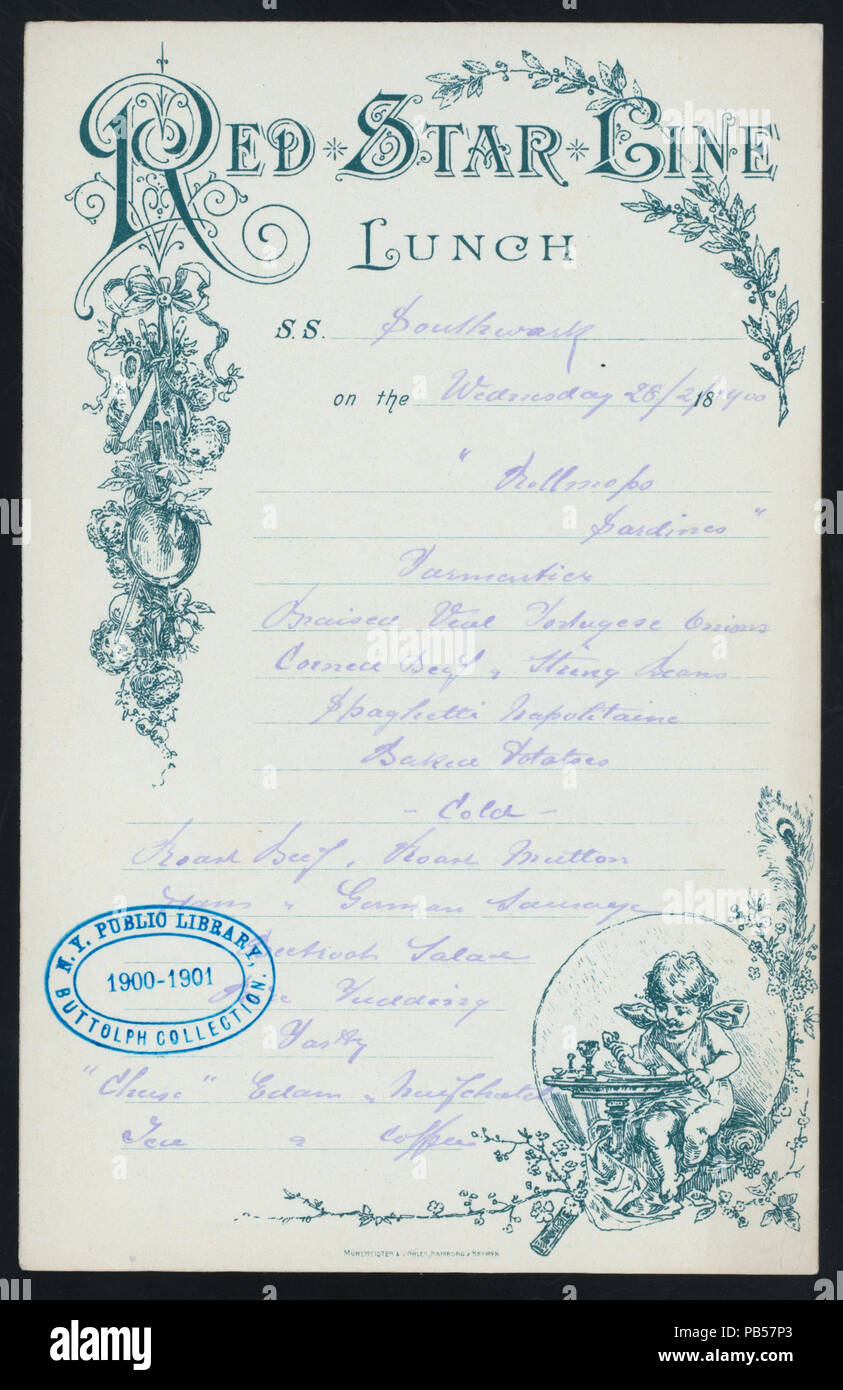 RED * STAR * LINE
LUNCH
S.S. Southwark
on the Wednesday 28/2/18 1900
" Rollmops
Sardines "
Parmentier
Braised Veal Portugese Onions
Corned Beef & String Beans
Spaghetti Napolitaine
Baked Potatoes
- Cold -
Roast Beef, Roast Mutton
Ham & German Sausage
Beetroot Salad
Rice Pudding
Pastry
"Cheese" Edam & Neufchatel
Tea & Coffee
N.Y. PUBLIC LIBRARY,
1900-1901
BUTTOLPH COLLECTION.
MÜHLMEISTER & JOHLER, HAMBURG & BREMEN
alamy
PB57P3
www.alamy.com